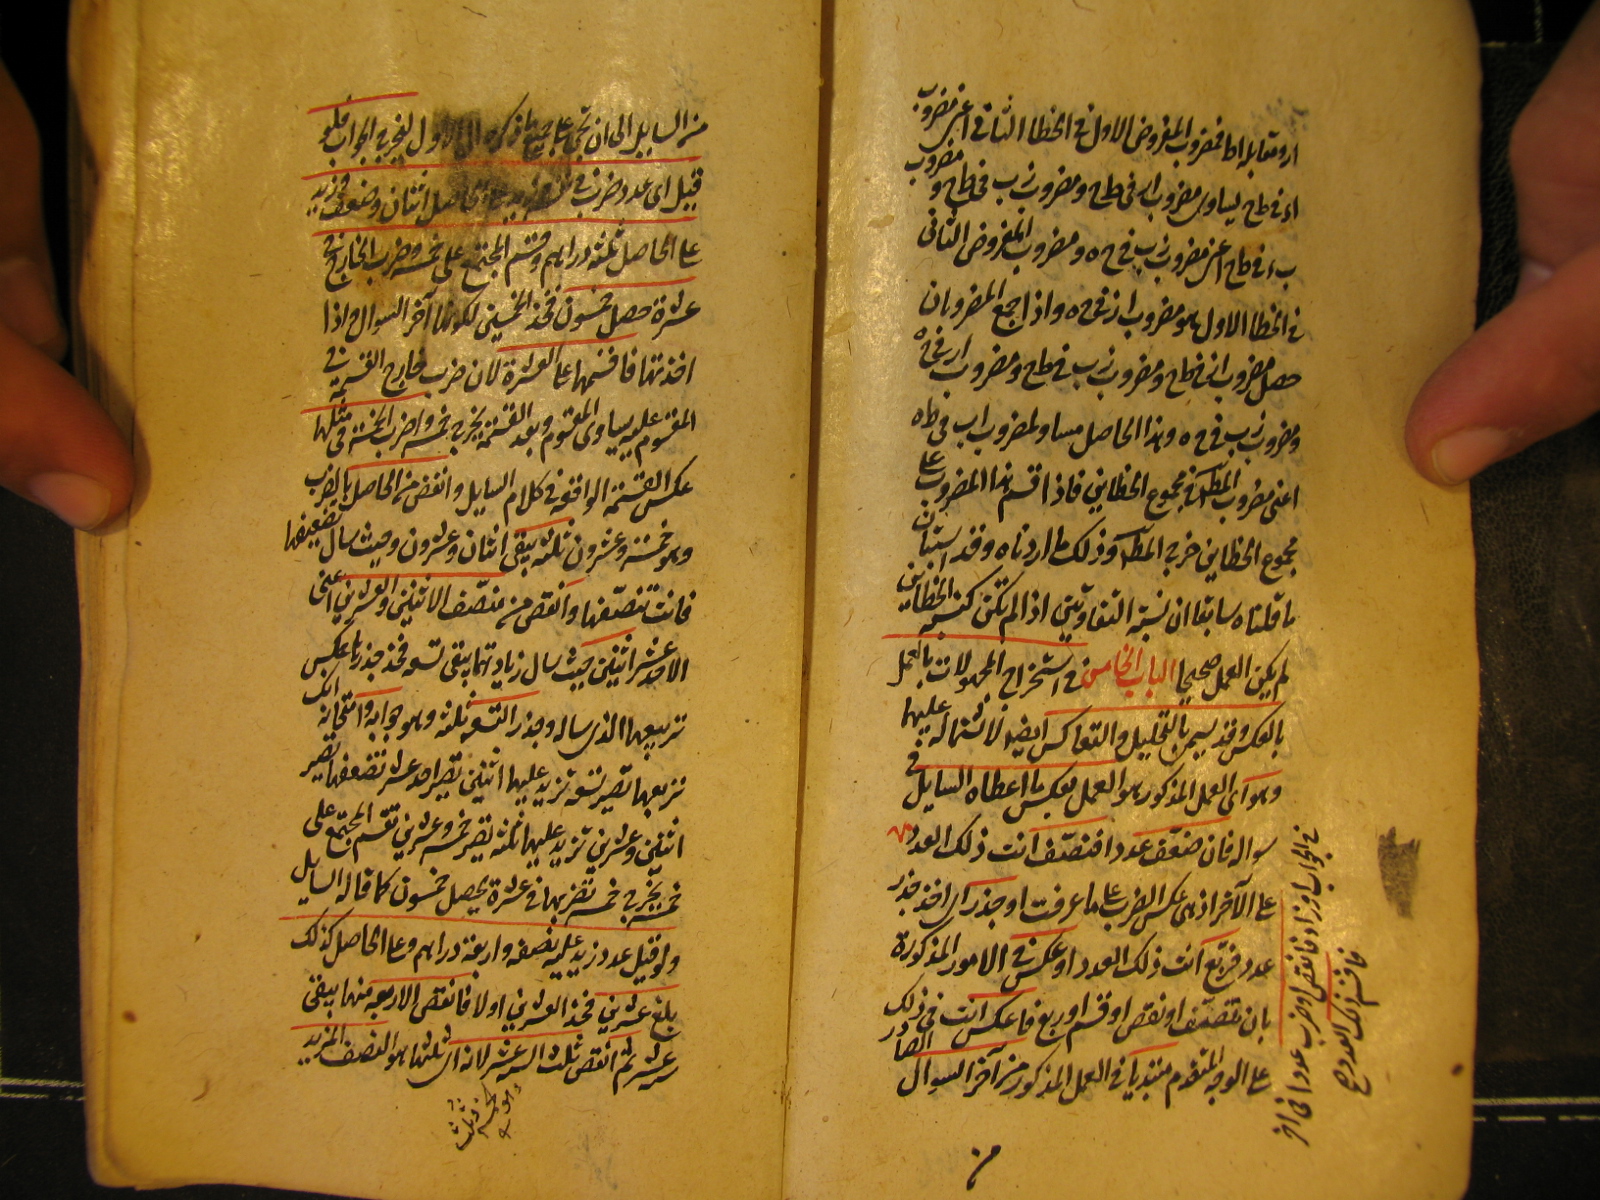 او مقابله اط فمضروب المفروض الاول فى الخطا الثانى اعنى مضروب
اء فى طح يساوى مضروب ار فى طح ومضروب زب فى طح و مضروب
ب ء فى طح اعنى مضروب زب فى ح ه ومضروب المفروض الثانى
فى الخطا الاول هو مضروب از فى ح ه واذا جمع المضروبان
حصل مضروب از فى طح ومضروب زب فى طح ومضروب از فى ح ه
ومضروب زب فى ح ه وهذا الحاصل مساو لمضروب اب فى ط ه
اعنى مضروب المط فى مجموع الخطاين فاذا قسم هذا المضروب على
مجموع الخطاين خرج المط وذلك ما اردناه وقد استبان
ما قلناه سابقا ان نسبة التفاوتين اذا لم تكن كنسبة الخطاين
لم يكن العمل صحيحا الباب الخامس فى استخراج المجهولات بالعمل
بالعكس وقد يسمى بالتحليل والتعاكس ايضا لاشتماله عليهما
وهو اى العمل المذكور هو العمل بعكس ما اعطاه السايل فى
سواله فان ضعف عددا فنصف انت ذلك العدد
على الآخر اذ هى عكس الضرب على ما عرفت او جذر اى اخذ جذر
عدد فربع انت ذلك العدد او عكس فى الامور المذكورة
بان نصف او نقص او قسم او ربع فاعكس انت فى ذلك
على الوجه المتقدم مبتديا فى العمل المذكور من آخر السوال
فى الجواب او زاد فانقص او ضرب عددا فى آخر
فاقسم ذلك العدد
من
من السايل الى ان تجى على جميع ما ذكره الاول ليخرج الجواب فلو
قيل اى عدد ضرب فى نفسه وزيد على الحاصل اثنان وضعف وزيد
على الحاصل ثلثة دراهم وقسم المجتمع على خمسة وضرب الخارج فى
عشرة حصل خمسون فخذ الخمسين لكونها آخر السوال واذا
اخذتها فاقسمها على العشرة لان ضرب خارج القسمة فى
المقسوم عليه يساوى المقسوم وبعد القسمة يخرج خمسة واضرب الخمسة فى مثلها
عكس القسمة الواقعة فى كلام السايل وانقص من الحاصل بالضرب
وهو خمسة وعشرون ثلثة يبقى اثنان وعشرون وحيث سال تضعيفها
فانت تنصفها وانقص من منصف الاثنين والعشرين اعنى
الاحد عشر اثنين حيث سال زيادتهما يبقى تسعة فخذ جذرها عكس
تربيعها الذى ساله وجذر التسعة ثلثة وهو جوابه وامتحانه انك
تربعها تصير تسعة تزيد عليها اثنين تصير احد عشر تضعفها تصير
اثنين وعشرين تزيد عليها ثلثة تصير خمسة وعشرين تقسم المجتمع على
خمسة يخرج خمسة تضربها فى عشرة يحصل خمسون كما قاله السايل
ولو قيل عدد زيد عليه نصفه واربعة دراهم وعلى الحاصل كذلك
بلغ عشرين فخذ العشرين اولا فانقص الاربعة منها يبقى
ستة عشر ثم انقص ثلث الستة عشر لانه اى ثلثها هو النصف المزيد
وهو خمسة وثلث